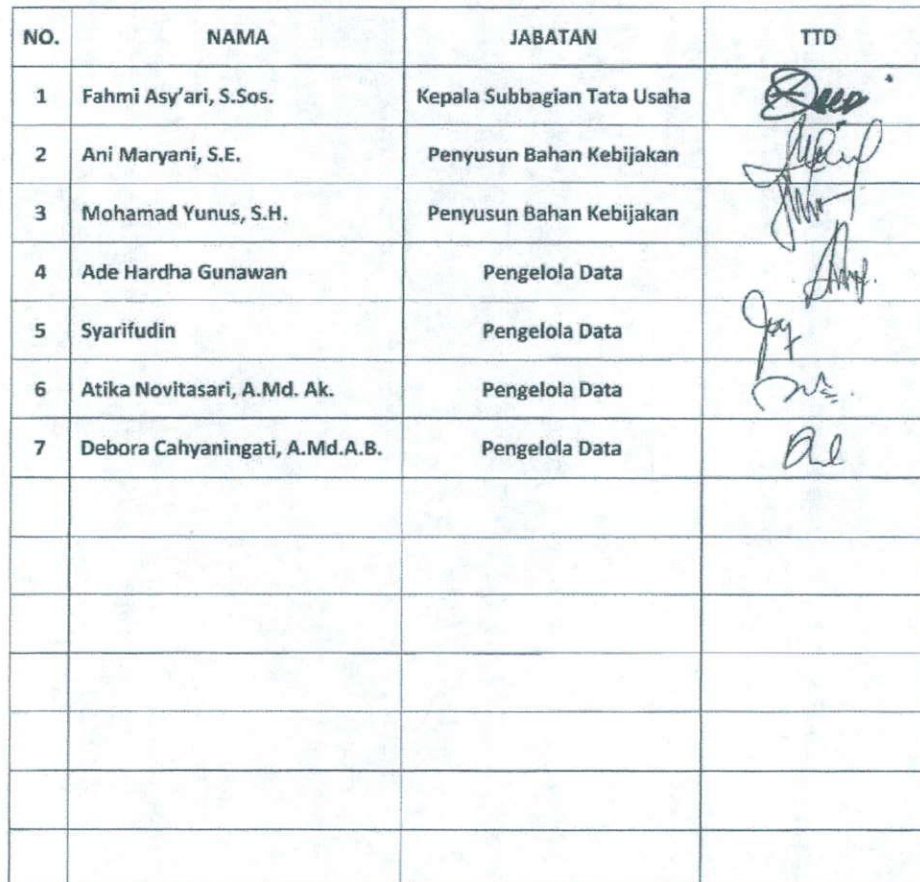 NO. NAMA JABATAN TTD
1 Fahmi Asy'ari, S.Sos. Kepala Subbagian Tata Usaha
2 Ani Maryani, S.E. Penyusun Bahan Kebijakan
3 Mohamad Yunus, S.H. Penyusun Bahan Kebijakan
4 Ade Hardha Gunawan Pengelola Data
5 Syarifudin Pengelola Data
6 Atika Novitasari, A.Md. Ak. Pengelola Data
7 Debora Cahyaningati, A.Md.A.B. Pengelola Data